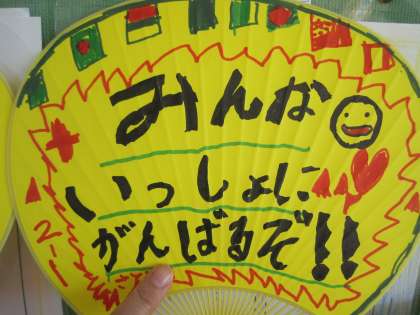 みんな
いっしょに
がんばるぞ!!